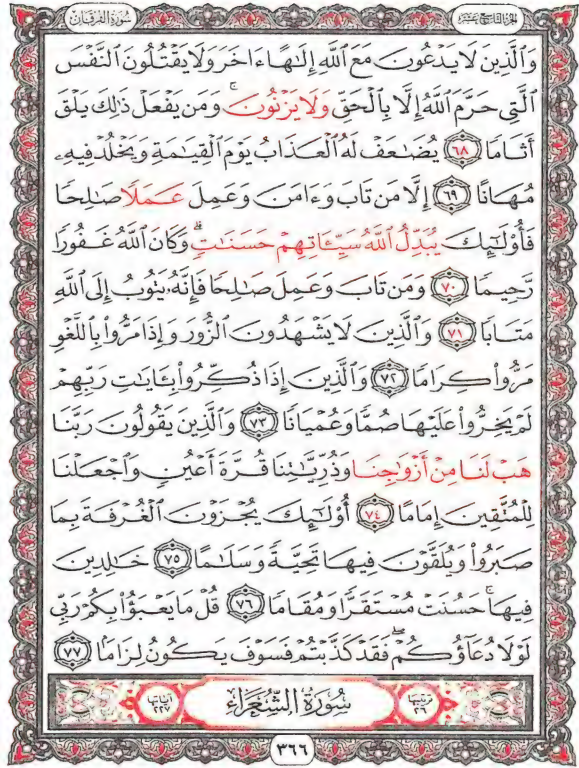 الجزء التاسع عشر سورة الفرقان
وَالَّذِينَ لَا يَدْعُونَ مَعَ اللَّهِ إِلَٰهًا ءَاخَرَ وَلَا يَقْتُلُونَ النَّفْسَ
الَّتِي حَرَّمَ اللَّهُ إِلَّا بِالْحَقِّ وَلَا يَزْنُونَ ۚ وَمَن يَفْعَلْ ذَٰلِكَ يَلْقَ
أَثَامًا ٦٨ يُضَٰعَفْ لَهُ الْعَذَابُ يَوْمَ الْقِيَٰمَةِ وَيَخْلُدْ فِيهِۦ
مُهَانًا ٦٩ إِلَّا مَن تَابَ وَءَامَنَ وَعَمِلَ عَمَلًا صَٰلِحًا
فَأُو۟لَٰٓئِكَ يُبَدِّلُ اللَّهُ سَيِّـَٔاتِهِمْ حَسَنَٰتٍ ۗ وَكَانَ اللَّهُ غَفُورًا
رَّحِيمًا ٧٠ وَمَن تَابَ وَعَمِلَ صَٰلِحًا فَإِنَّهُۥ يَتُوبُ إِلَى اللَّهِ
مَتَابًا ٧١ وَالَّذِينَ لَا يَشْهَدُونَ الزُّورَ وَإِذَا مَرُّوا۟ بِاللَّغْوِ
مَرُّوا۟ كِرَامًا ٧٢ وَالَّذِينَ إِذَا ذُكِّرُوا۟ بِـَٔايَٰتِ رَبِّهِمْ
لَمْ يَخِرُّوا۟ عَلَيْهَا صُمًّا وَعُمْيَانًا ٧٣ وَالَّذِينَ يَقُولُونَ رَبَّنَا
هَبْ لَنَا مِنْ أَزْوَٰجِنَا وَذُرِّيَّٰتِنَا قُرَّةَ أَعْيُنٍ وَاجْعَلْنَا
لِلْمُتَّقِينَ إِمَامًا ٧٤ أُو۟لَٰٓئِكَ يُجْزَوْنَ الْغُرْفَةَ بِمَا
صَبَرُوا۟ وَيُلَقَّوْنَ فِيهَا تَحِيَّةً وَسَلَٰمًا ٧٥ خَٰلِدِينَ
فِيهَا ۚ حَسُنَتْ مُسْتَقَرًّا وَمُقَامًا ٧٦ قُلْ مَا يَعْبَؤُا۟ بِكُمْ رَبِّي
لَوْلَا دُعَآؤُكُمْ ۖ فَقَدْ كَذَّبْتُمْ فَسَوْفَ يَكُونُ لِزَامًا ٧٧
ترتيبها ٢٦ سُورَةُ الشُّعَرَاءِ آياتها ٢٢٧
٣٦٦